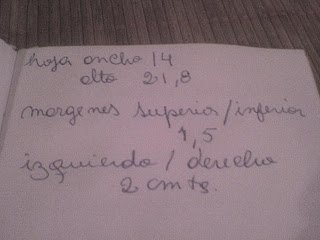 hoja ancho 14
alto 21,8
margenes superior/inferior
1,5
izquierdo/derecho
2 cmts.